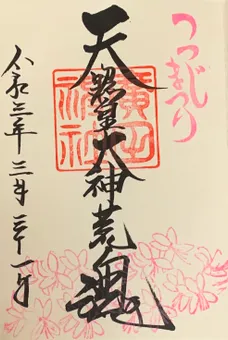 つつじまつり
天照皇大神荒魂
廣田神社
令和三年三月三十一日